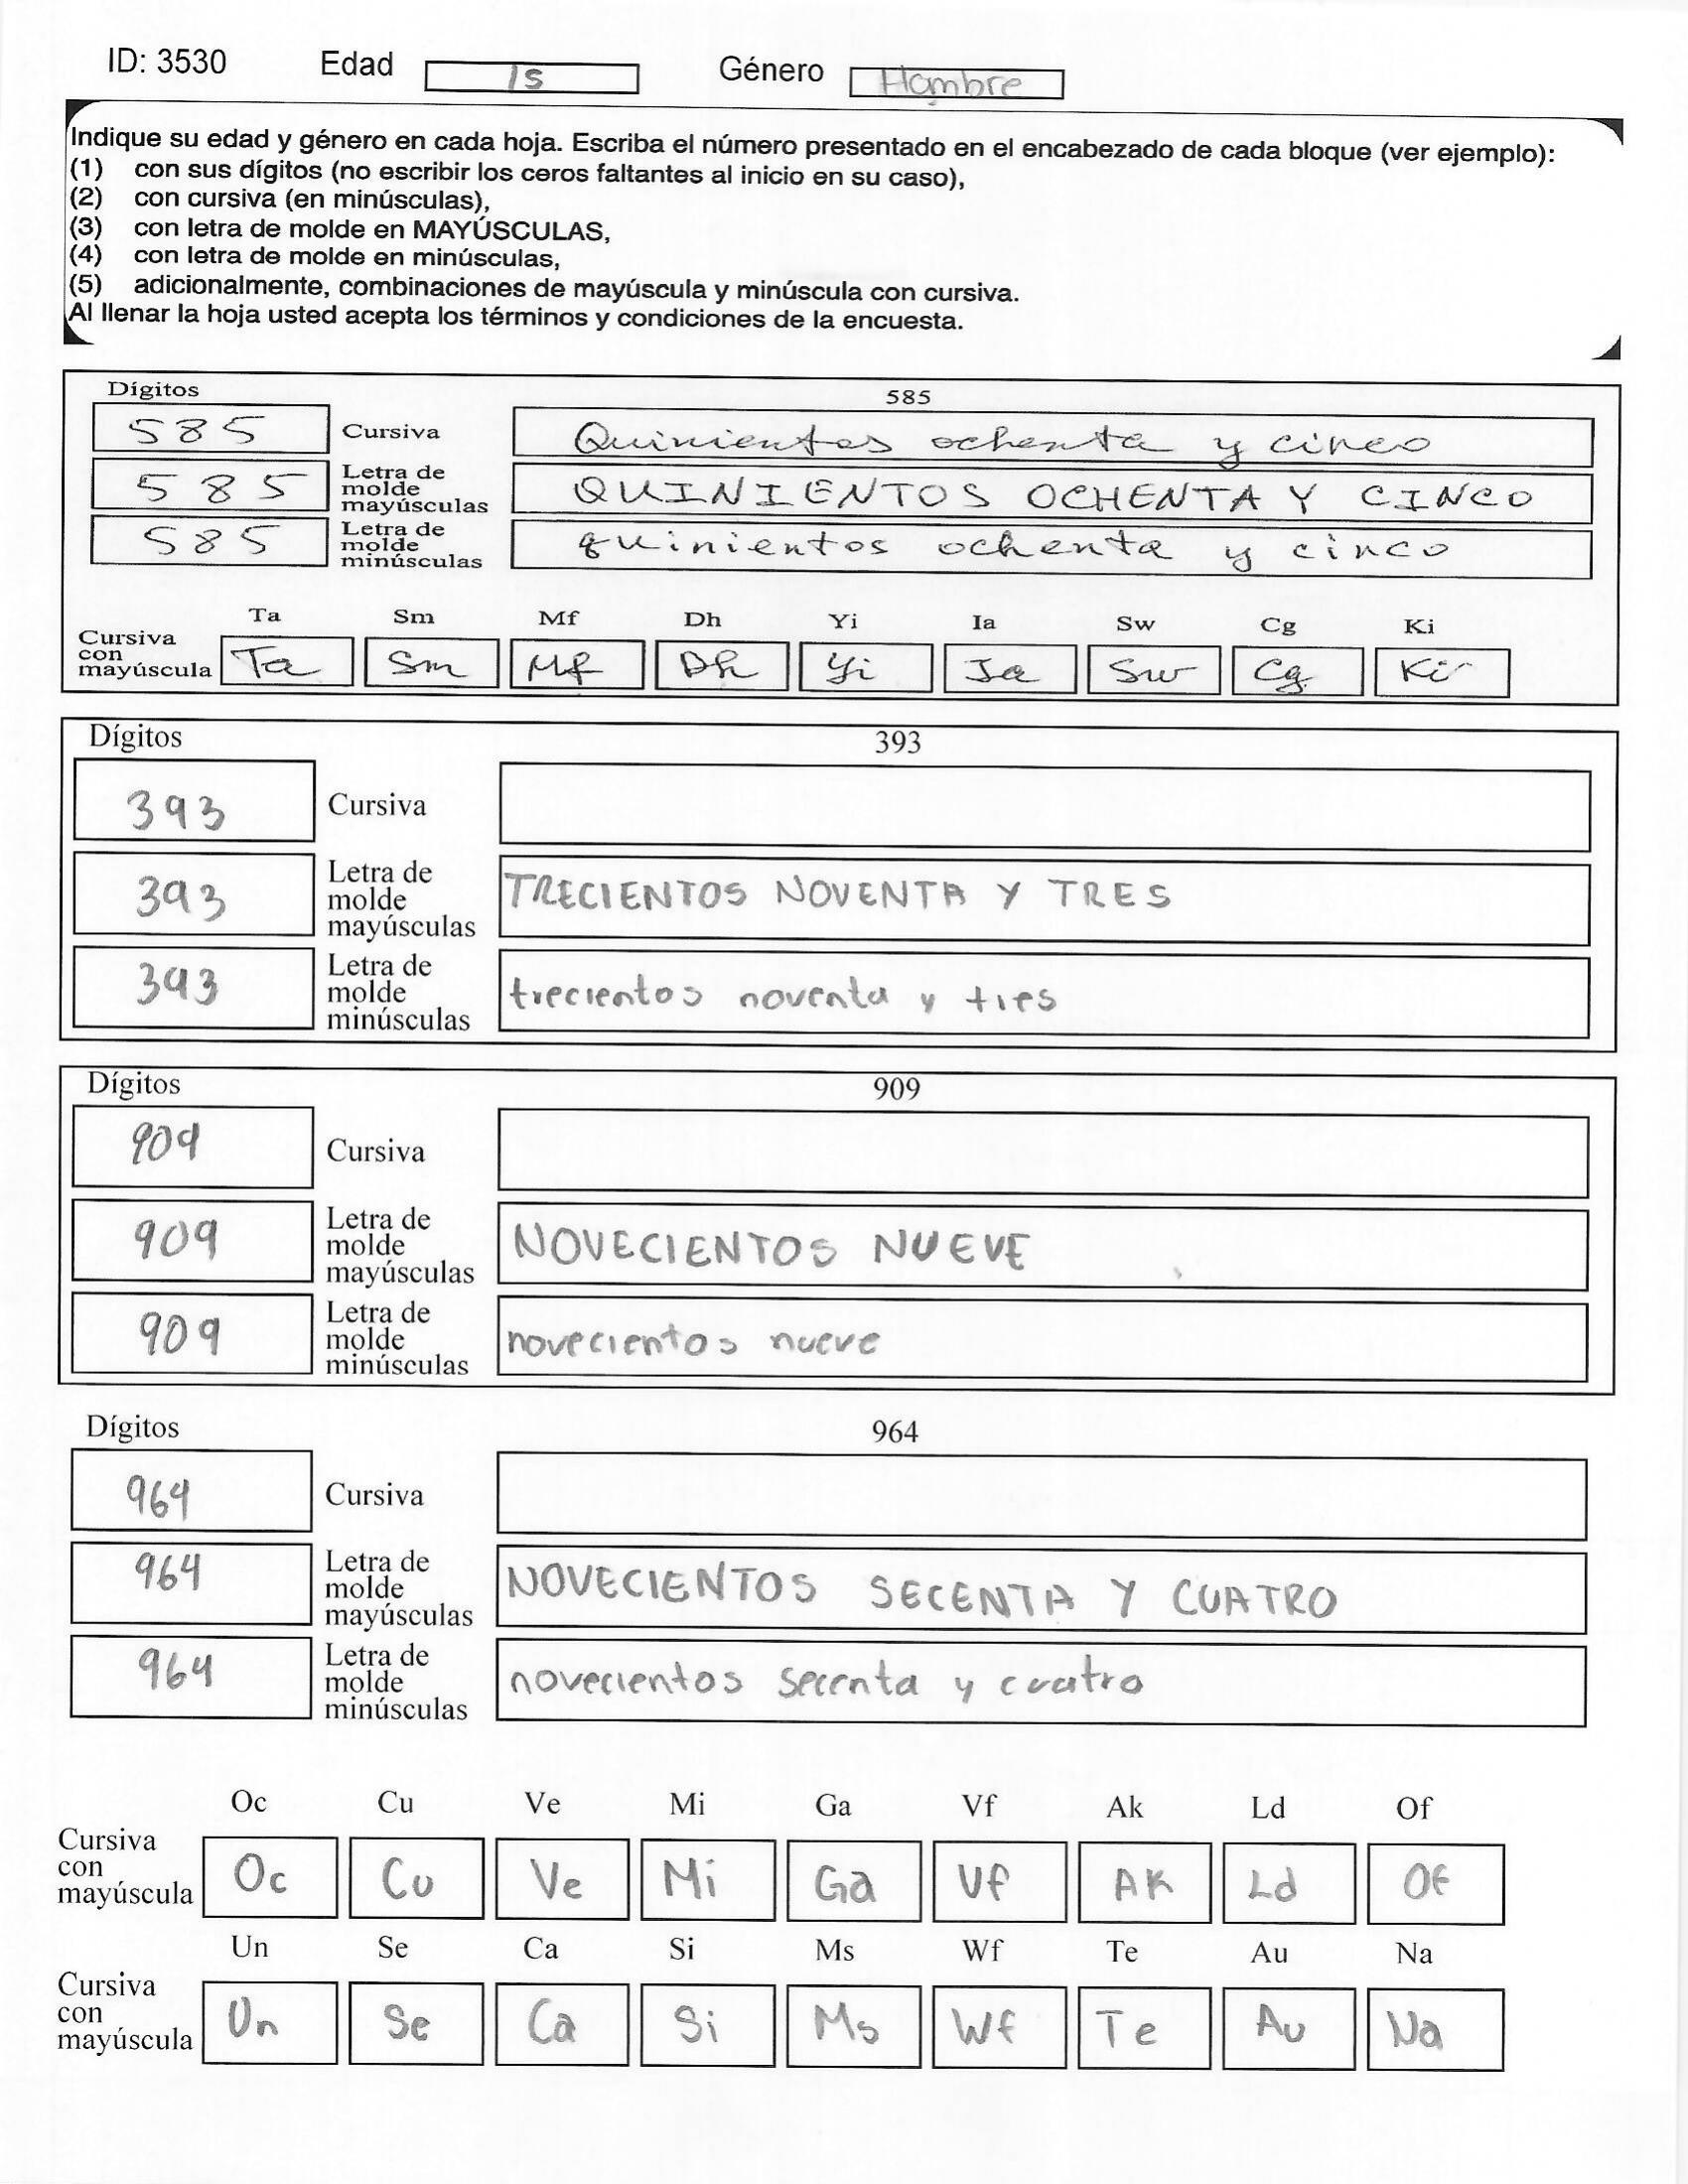 ID: 3530 Edad 15 Género Hombre
Indique su edad y género en cada hoja. Escriba el número presentado en el encabezado de cada bloque (ver ejemplo):
(1) con sus dígitos (no escribir los ceros faltantes al inicio en su caso),
(2) con cursiva (en minúsculas),
(3) con letra de molde en MAYÚSCULAS,
(4) con letra de molde en minúsculas,
(5) adicionalmente, combinaciones de mayúscula y minúscula con cursiva.
Al llenar la hoja usted acepta los términos y condiciones de la encuesta.
Dígitos 585
585 Cursiva Quinientos ochenta y cinco
585 Letra de molde mayúsculas QUINIENTOS OCHENTA Y CINCO
585 Letra de molde minúsculas quinientos ochenta y cinco
Ta Sm Mf Dh Yi Ia Sw Cg Ki
Cursiva con mayúscula Ta Sm Mf Dh Yi Ia Sw Cg Ki
Dígitos 393
393 Cursiva
393 Letra de molde mayúsculas TRECIENTOS NOVENTA Y TRES
393 Letra de molde minúsculas trecientos noventa y tres
Dígitos 909
909 Cursiva
909 Letra de molde mayúsculas NOVECIENTOS NUEVE
909 Letra de molde minúsculas novecientos nueve
Dígitos 964
964 Cursiva
964 Letra de molde mayúsculas NOVECIENTOS SECENTA Y CUATRO
964 Letra de molde minúsculas novecientos secenta y cuatro
Oc Cu Ve Mi Ga Vf Ak Ld Of
Cursiva con mayúscula Oc Cu Ve Mi Ga Vf AK Ld Of
Un Se Ca Si Ms Wf Te Au Na
Cursiva con mayúscula Un Se Ca Si Ms Wf Te Au Na